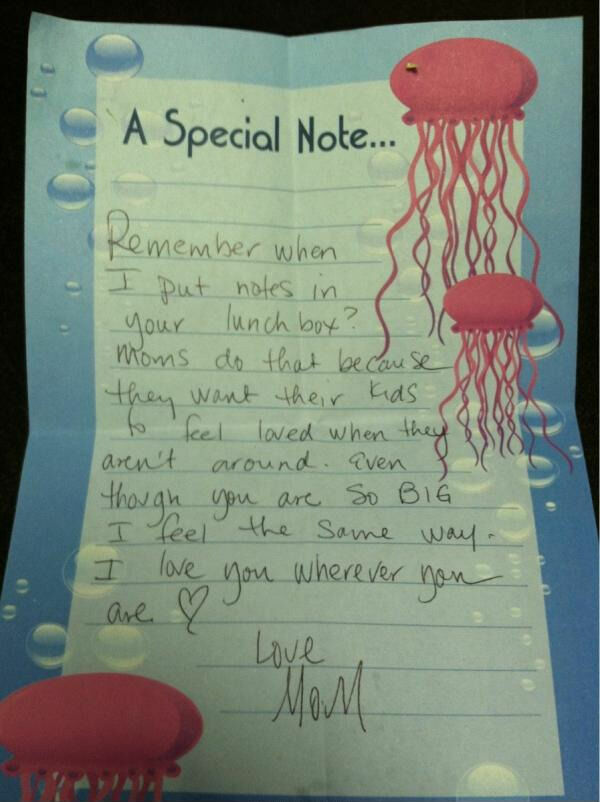 A Special Note...
Remember when
I put notes in
your lunch box?
Moms do that because
they want their kids
to feel loved when they
aren't around. Even
though you are SO BIG
I feel the same way.
I love you wherever you
are ♡
Love
MoM